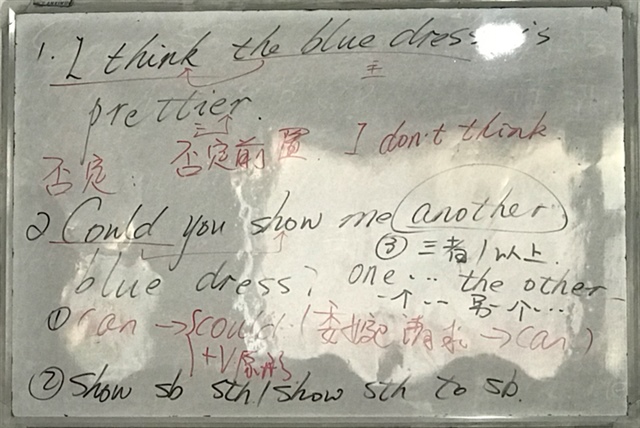 1. I think the blue dress is
主
prettier.
否定: 否定前置. I don't think
2 Could you show me another
③ 三者/以上.
blue dress? one... the other
一个... 另一个...
① can → could (委婉请求 → can)
+V原形
② Show sb sth/show sth to sb.